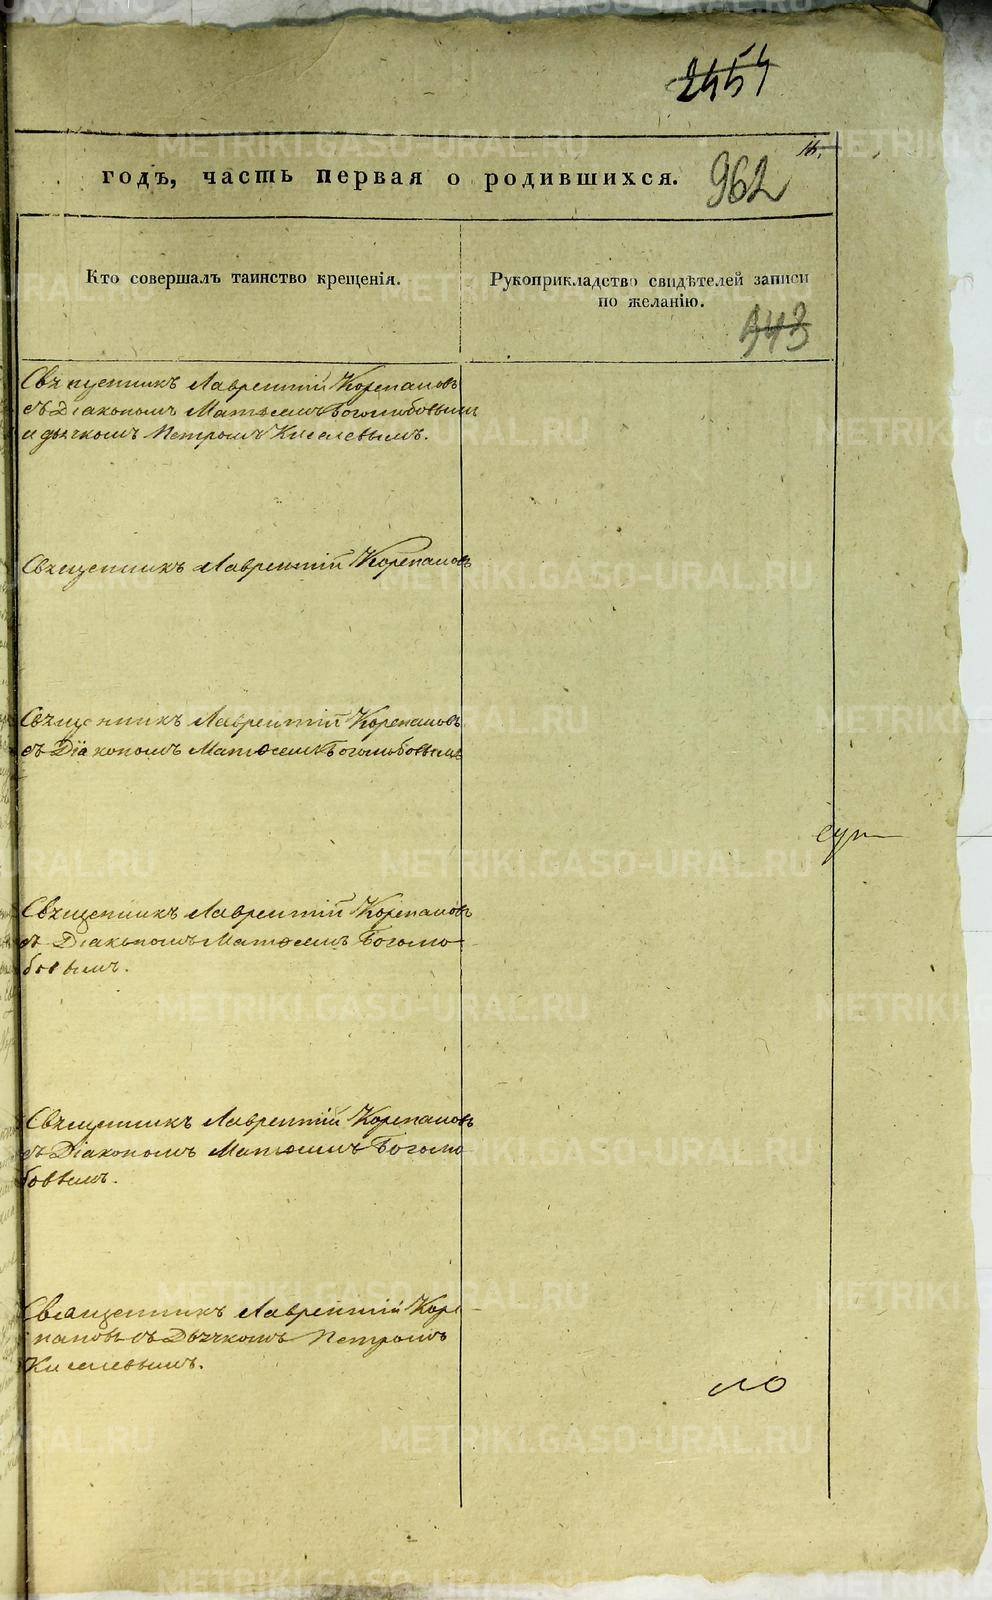 2454
15.
годъ, часть первая о родившихся.
962
Кто совершалъ таинство крещенія.
Рукоприкладство свидѣтелей записи
по желанію.
343
Священникъ Лаврентій Корепановъ
съ Діакономъ Матѳеемъ Боголюбовымъ
и дьячкомъ Петромъ Киселевымъ.
Священникъ Лаврентій Корепановъ
Священникъ Лаврентій Корепановъ
съ Діакономъ Матѳеемъ Боголюбовымъ
Священникъ Лаврентій Корепановъ
съ Діакономъ Матѳеемъ Боголю-
бовымъ.
Священникъ Лаврентій Корепановъ
съ Діакономъ Матѳеемъ Боголю
бовымъ.
Священникъ Лаврентій Коре-
пановъ съ Дьячкомъ Петромъ
Киселевымъ.
METRIKI.GASO-URAL.RU